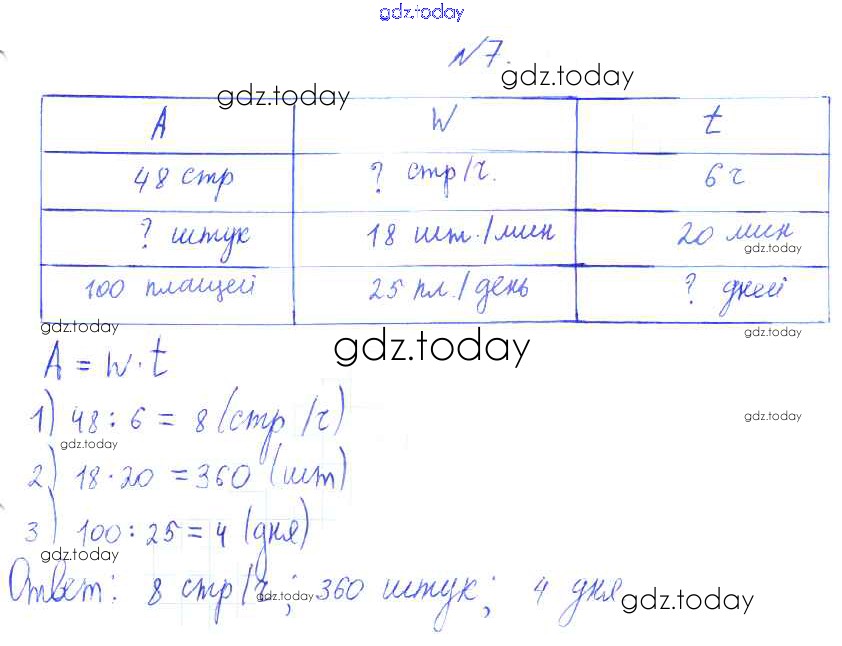 gdz.today
№7.
gdz.today gdz.today
A W t
48 стр ? стр/ч. 6 ч
? штук 18 шт./мин 20 мин
gdz.today
100 плащей 25 пл./день ? дней
gdz.today gdz.today
A = W · t
gdz.today
1) 48 : 6 = 8 (стр/ч)
gdz.today
gdz.today
2) 18 · 20 = 360 (шт)
3) 100 : 25 = 4 (дня)
gdz.today
Ответ: 8 стр/ч; 360 штук; 4 дня
gdz.today gdz.today